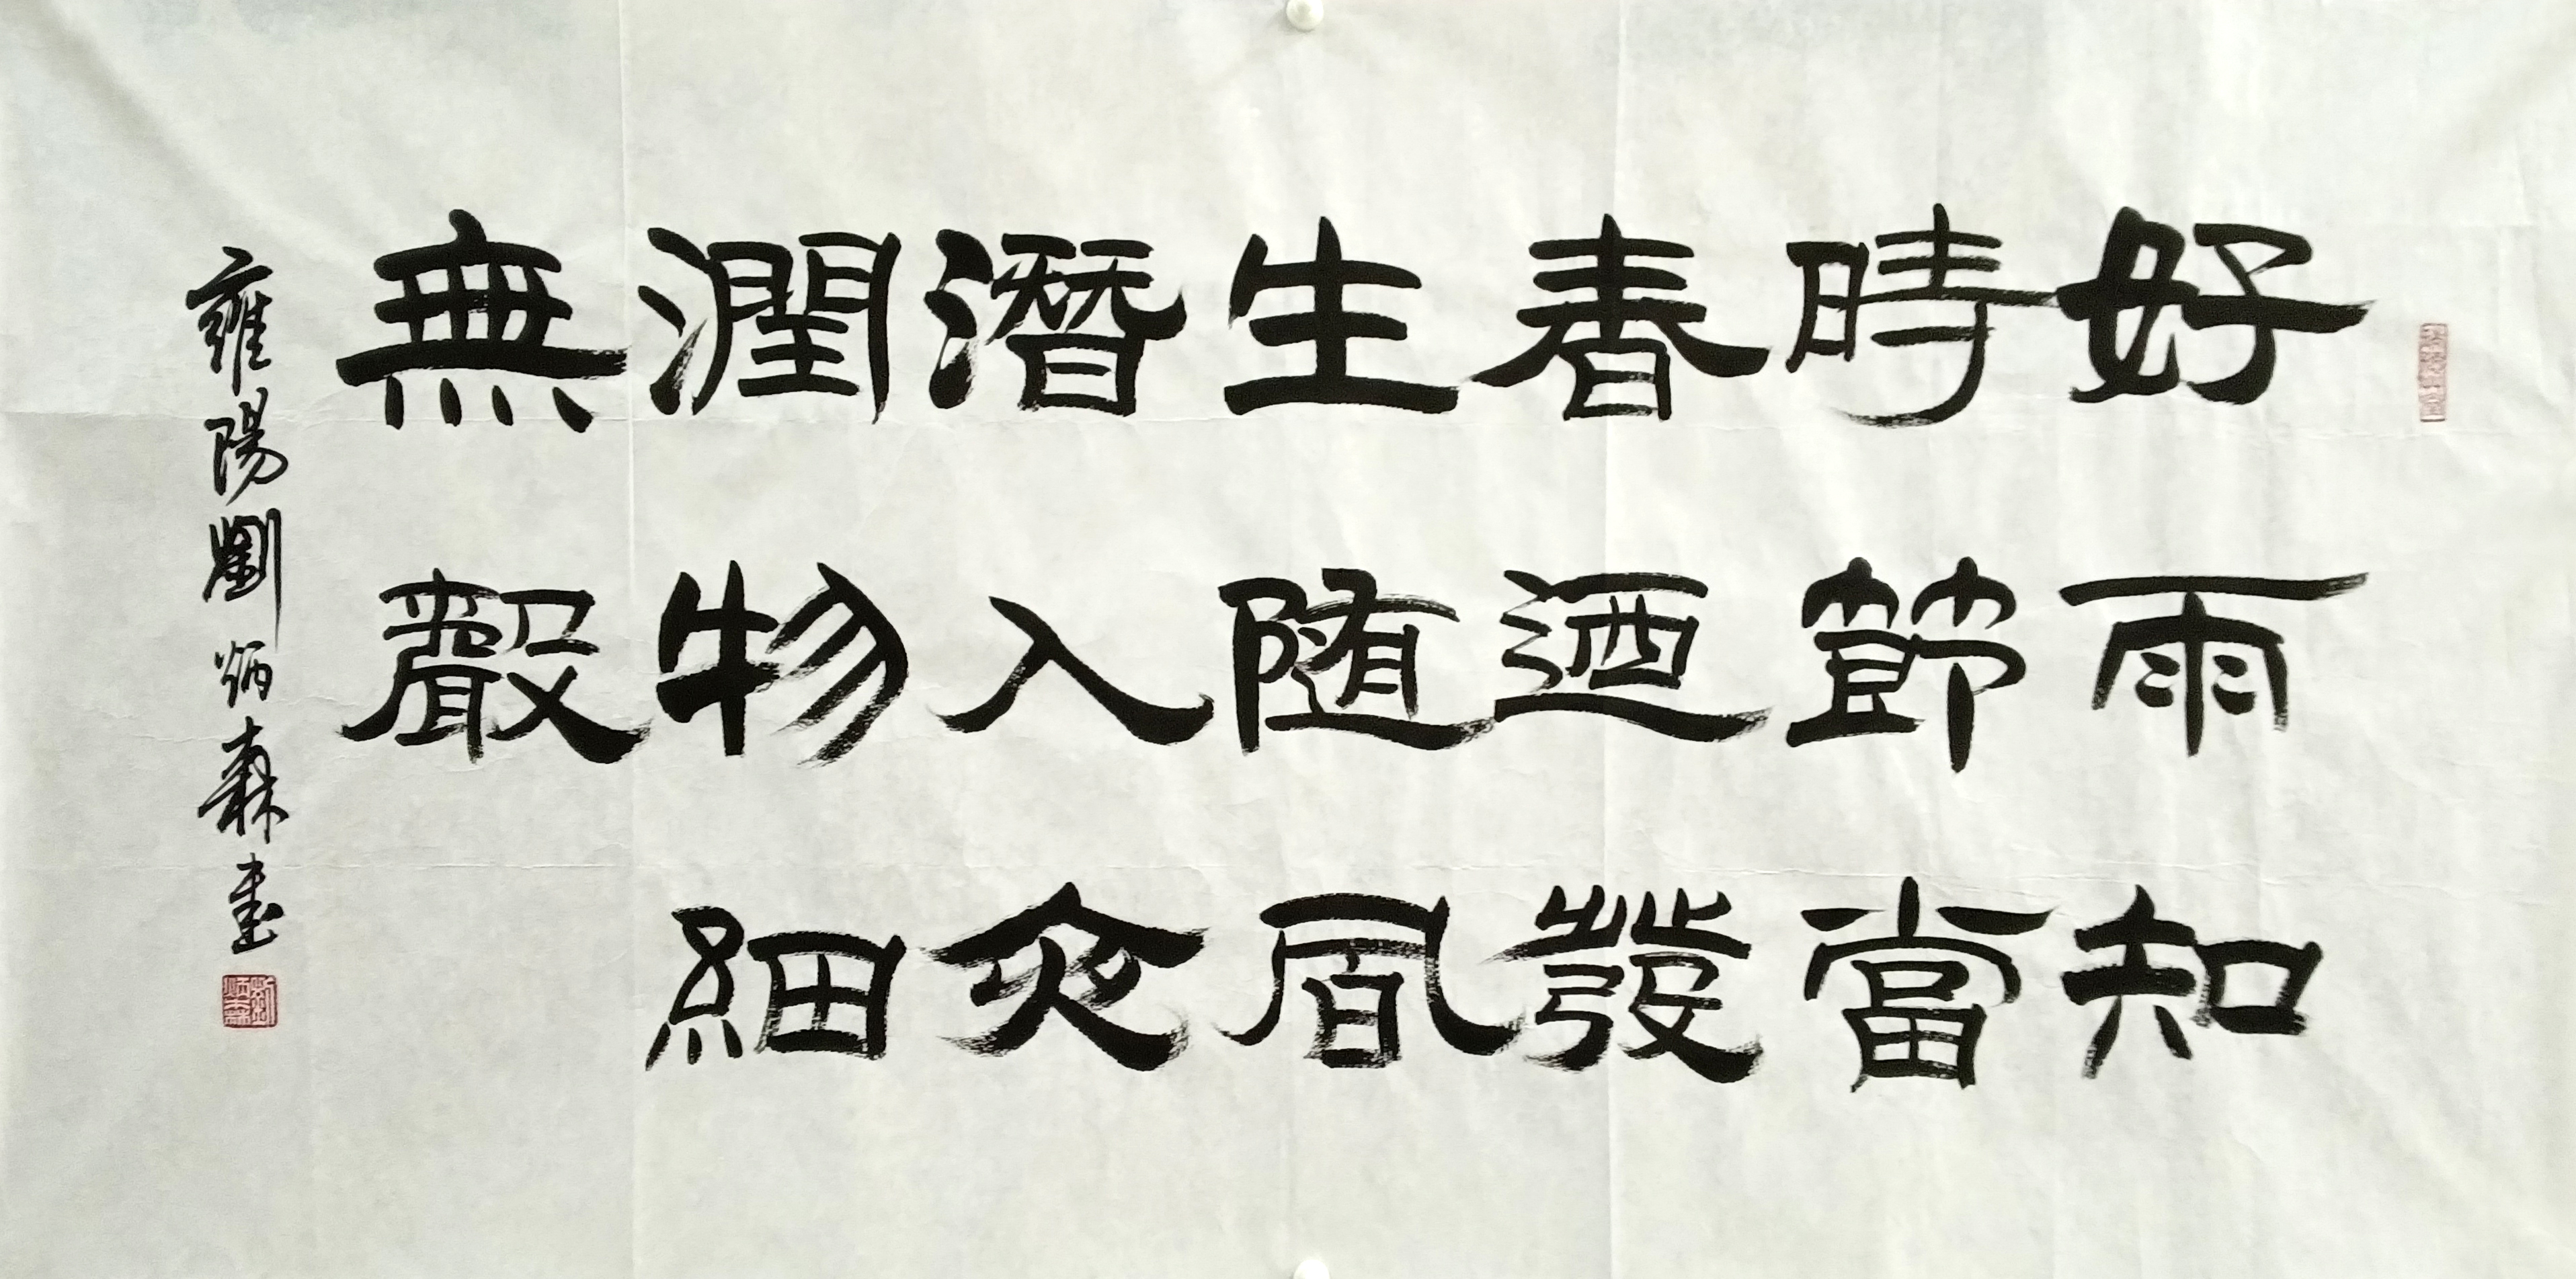 好雨知
時節當
春迺發
生随風
潛入夜
潤物細
無聲
雍陽劉炳森書
劉炳森